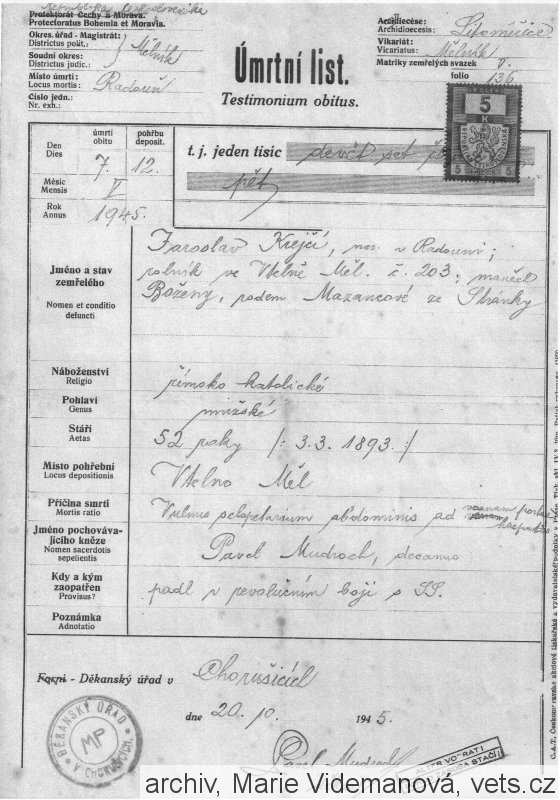 Republika Československá
Protektorát Čechy a Morava.
Protectoratus Bohemia et Moravia.
Okres. úřad - Magistrát:
Districtus polit.:
Soudní okres:
Districtus judic.:
Mělník
Místo úmrtí:
Locus mortis:
Radouň
Číslo jedn.:
Nr. exh.:
Úmrtní list.
Testimonium obitus.
Archidiecése:
Archidioecesis:
Litoměřice
Vikariát:
Vicariatus:
Mělník
Matriky zemřelých svazek V.
folio 136
KOLKOVÁ
5
K
5 5
Den
Dies
úmrtí
obitu
pohřbu
deposit.
7. 12.
Měsíc
Mensis
V
Rok
Annus
1945.
t. j. jeden tisíc devět set
pět
Jméno a stav
zemřelého
Nomen et conditio
defuncti
Jaroslav Krejčí, nar. v Radouni;
rolník ve Vtelně Měl. č. 203; manžel
Boženy, rodem Mazancové ze Stránky
Náboženství
Religio
římsko katolické
Pohlaví
Genus
mužské
Stáří
Aetas
52 roky /: 3.3. 1893 :/
Místo pohřební
Locus depositionis
Vtelno Měl
Příčina smrti
Mortis ratio
Vulnus sclopetarium abdominis ad
Jméno pochováva-
jícího kněze
Nomen sacerdotis
sepelientis
Pavel Mudroch, decanus
Kdy a kým
zaopatřen
Provisus?
padl v revolučním boji s SS.
Poznámka
Adnotatio
Farní - Děkanský úřad v Chorušicích
dne 20. 10. 1945.
Pavel Mudroch
DĚKANSKÝ ÚŘAD
MP
V CHORUŠICÍCH
archiv, Marie Videmanová, vets.cz